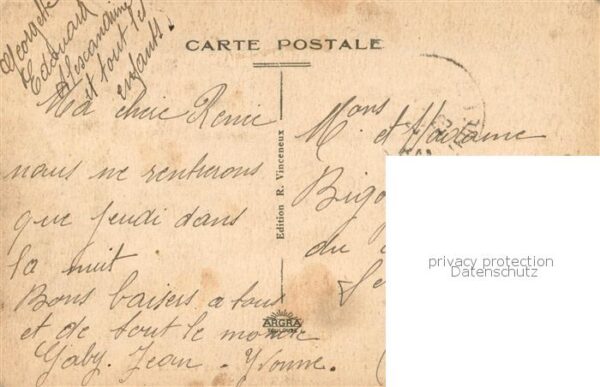 Georgette
Edouard
Alexandrine
et tout les
enfants.
CARTE POSTALE
Ma chere Renée
nous ne rentrerons
que jeudi dans
la nuit
Bons baisers a tous
et de tout le monde
Gaby. Jean. Yvonne.
Edition R. Vinceneux
ARGRA
TOULOUSE
Mons et Madame
Bigo
du
privacy protection
Datenschutz